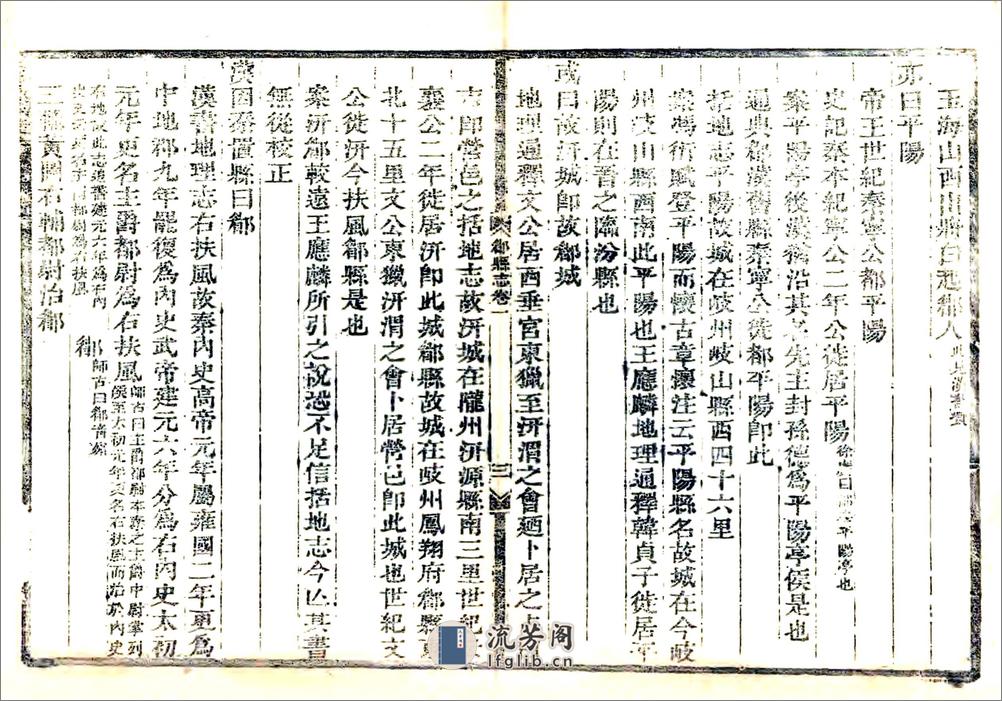 玉海山西
亦曰平陽
帝王世紀秦寧公都平陽
史記秦本紀寧公二年公徙居平陽 徐廣曰郿之平陽亭也
案平陽亭後漢猶沿其名先主封孫德為平陽亭侯是也
通典郿漢舊縣秦寧公徙都平陽即此
括地志平陽故城在岐州岐山縣西四十六里
案馮衍賦登平陽而懷古章懷注云平陽縣名故城在今岐
州岐山縣西南此平陽也王應麟地理通釋韓貞子徙居平
陽則在晉之臨汾縣也
或曰故汧城即故郿城
地理通釋文公居西垂宮東獵至汧渭之會廼卜居之占
郿縣志卷一
三
吉即營邑之括地志故汧城在隴州汧源縣南三里世紀
襄公二年徙居汧即此城郿縣故城在岐州鳳翔府郿縣東
北十五里文公東獵汧渭之會卜居營邑即此城也世紀文
公徙汧今扶風郿縣是也
案汧郿較遠王應麟所引之說恐不足信括地志今亾其書
無從校正
漢因秦置縣曰郿
漢書地理志右扶風故秦內史高帝元年屬雍國二年更為
中地郡九年罷復為內史武帝建元六年分為右內史太初
元年更名主爵都尉為右扶風 師古曰主爵都尉本秦之主爵中尉掌列
侯至太初元年更名右扶風而治於內史
右地故此志追書建元六年為右內
史太初元年更名為右扶風 郿 師古曰郿音媚
三輔黃圖右輔都尉治郿
流芳阁
lfglib.cn